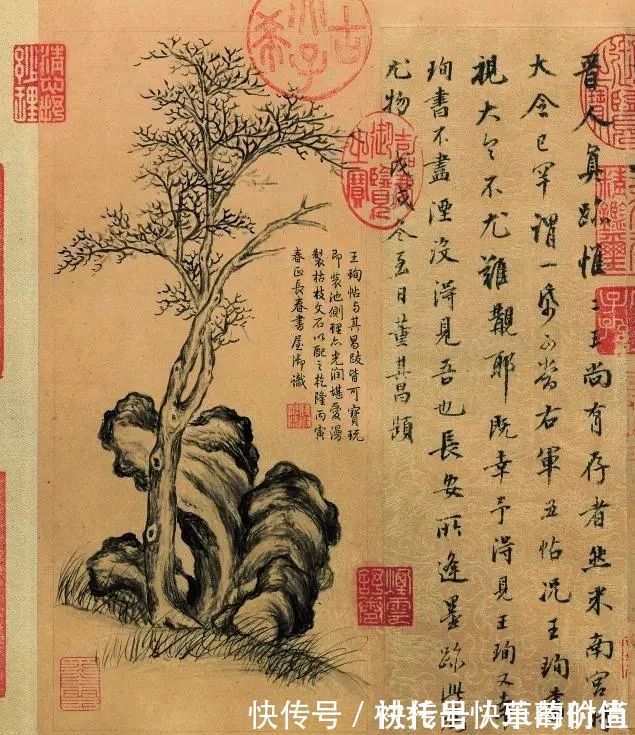 晉人真跡惟二王尚有存者然米南宮時
大令已罕謂一帋可當右軍五帖况王珣書
視大令不尤難覯耶既幸予得見王珣又幸
珣書不盡湮沒得見吾也長安所逢墨跡此
尤物 戊戌冬至日董其昌題
王珣帖與其昌跋皆可寶玩
即裝池側理亦光潤堪愛漫
製枯枝文石以配之乾隆丙寅
春正長春書屋御識
古希天子
嘉慶御覽之寶
快传号 /